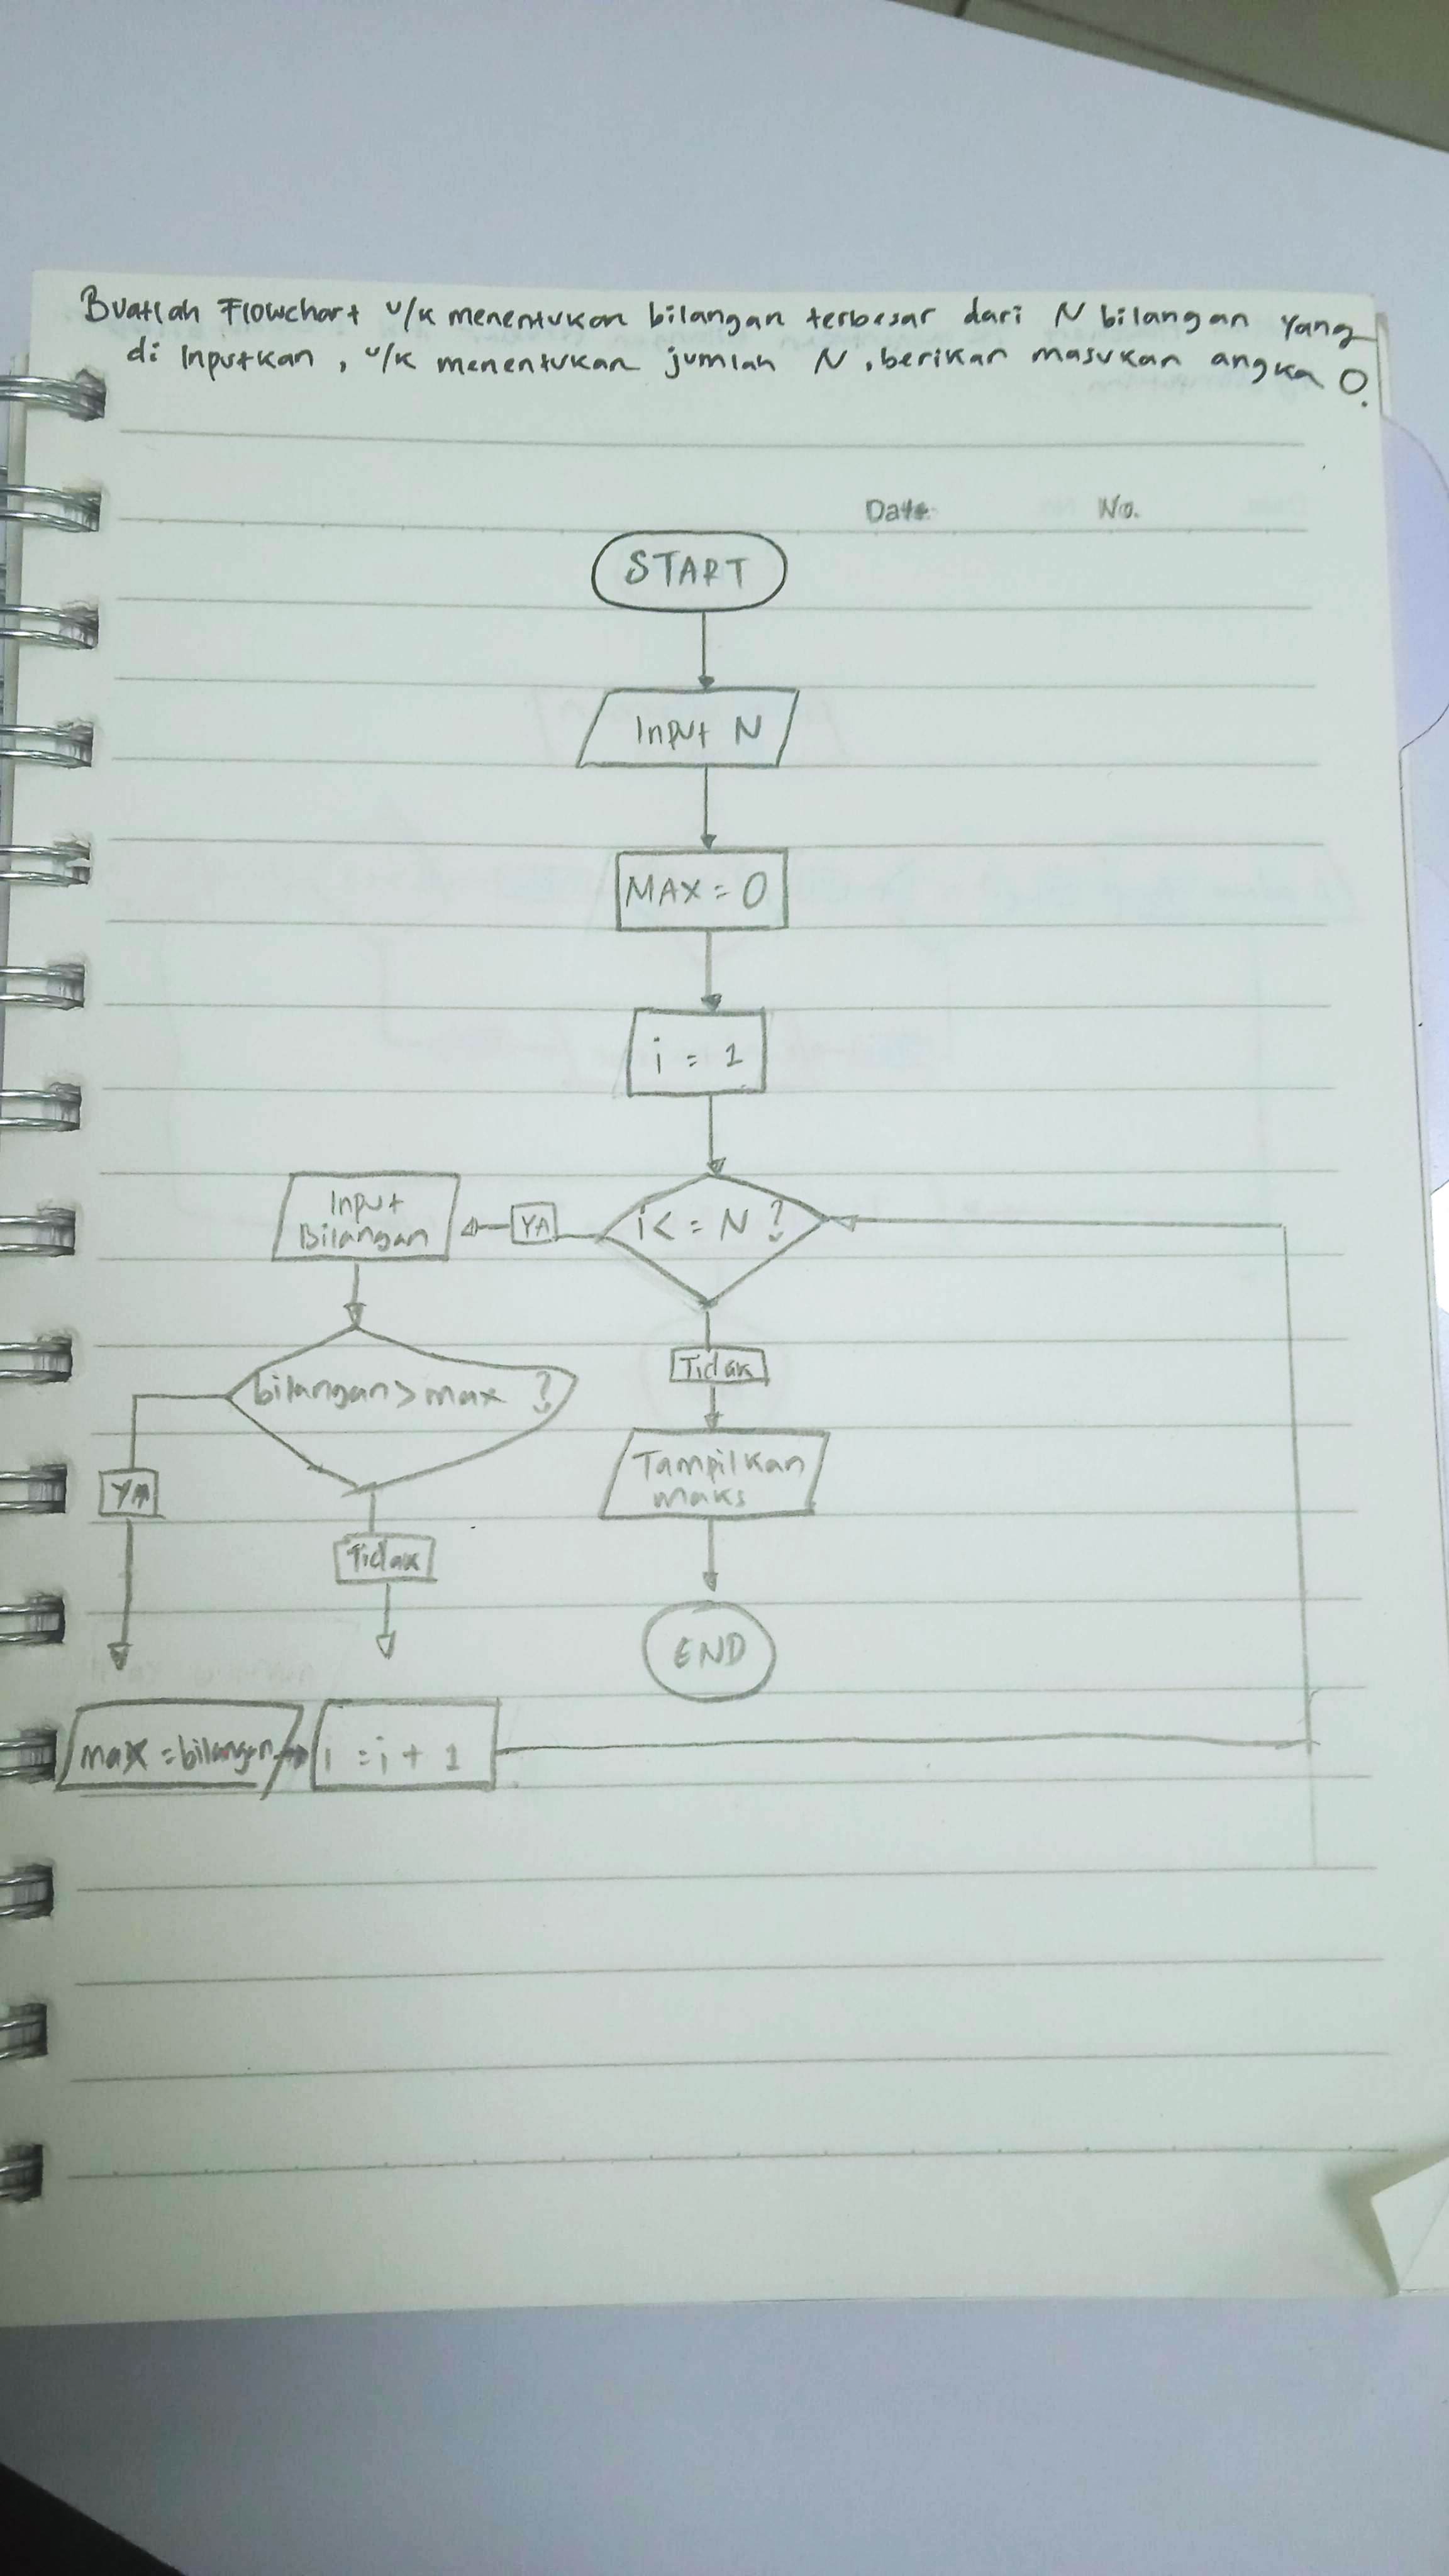 Buatlah Flowchart u/k menentukan bilangan terbesar dari N bilangan yang
di Inputkan, u/k menentukan jumlah N, berikan masukan angka 0.
Date No.
START
Input N
MAX = 0
i = 1
i <= N ?
YA
Input
Bilangan
bilangan > max ?
Tidak
Tampilkan
maks
YA
Tidak
END
max = bilangan
i = i + 1